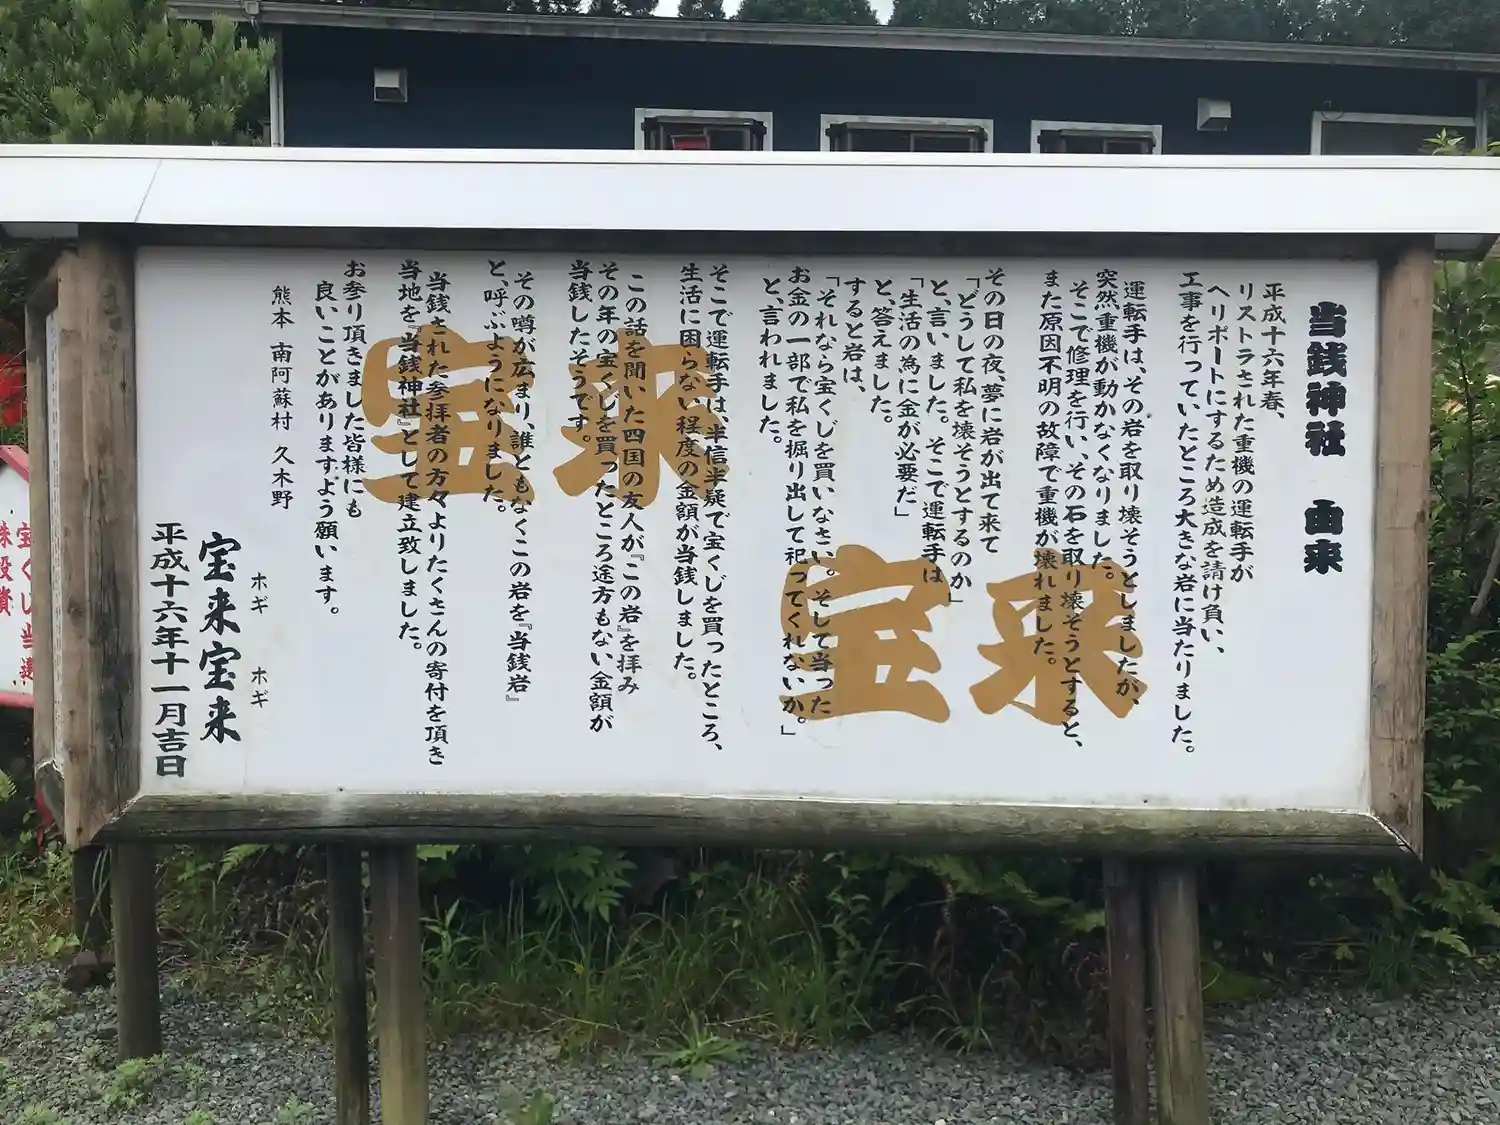 当銭神社 由来
平成十六年春、
リストラされた重機の運転手が
ヘリポートにするため造成を請け負い、
工事を行っていたところ大きな岩に当たりました。
運転手は、その岩を取り壊そうとしましたが、
突然重機が動かなくなりました。
そこで修理を行い、その石を取り壊そうとすると、
また原因不明の故障で重機が壊れました。
その日の夜、夢に岩が出て来て
「どうして私を壊そうとするのか」
と、言いました。そこで運転手は
「生活の為に金が必要だ」
と、答えました。
すると岩は、
「それなら宝くじを買いなさい。そして当った
お金の一部で私を掘り出して祀ってくれないか。」
と、言われました。
そこで運転手は、半信半疑で宝くじを買ったところ、
生活に困らない程度の金額が当銭しました。
この話を聞いた四国の友人が『この岩』を拝み
その年の宝くじを買ったところ途方もない金額が
当銭したそうです。
その噂が広まり、誰ともなくこの岩を『当銭岩』
と、呼ぶようになりました。
当銭された参拝者の方々よりたくさんの寄付を頂き
当地を『当銭神社』として建立致しました。
お参り頂きました皆様にも
良いことがありますよう願います。
熊本 南阿蘇村 久木野
ホギ ホギ
宝来宝来
平成十六年十一月吉日
宝来
宝来
宝くじ当選
株投資